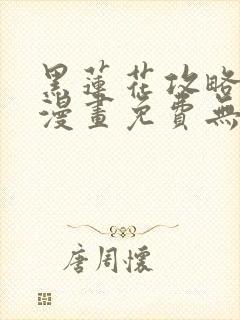 黑蓮花攻略
漫畫免費無
唐周懷